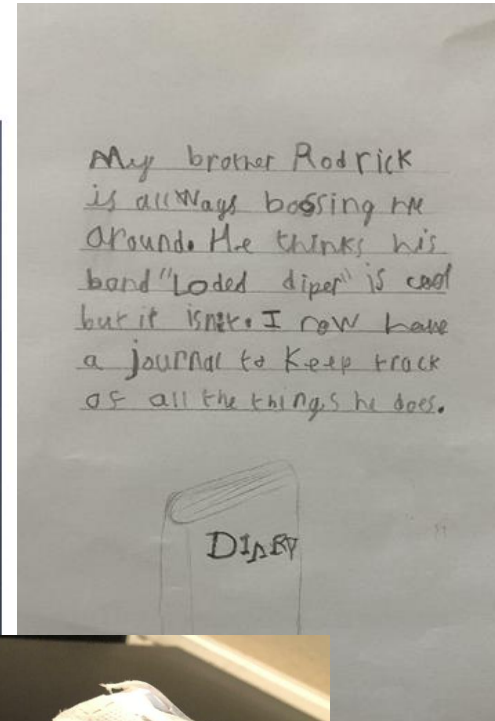 My brother Rodrick
is allways bossing me
around. He thinks his
band "Loded diper" is cool
but it isn't. I now have
a journal to keep track
of all the things he does.
DIARY